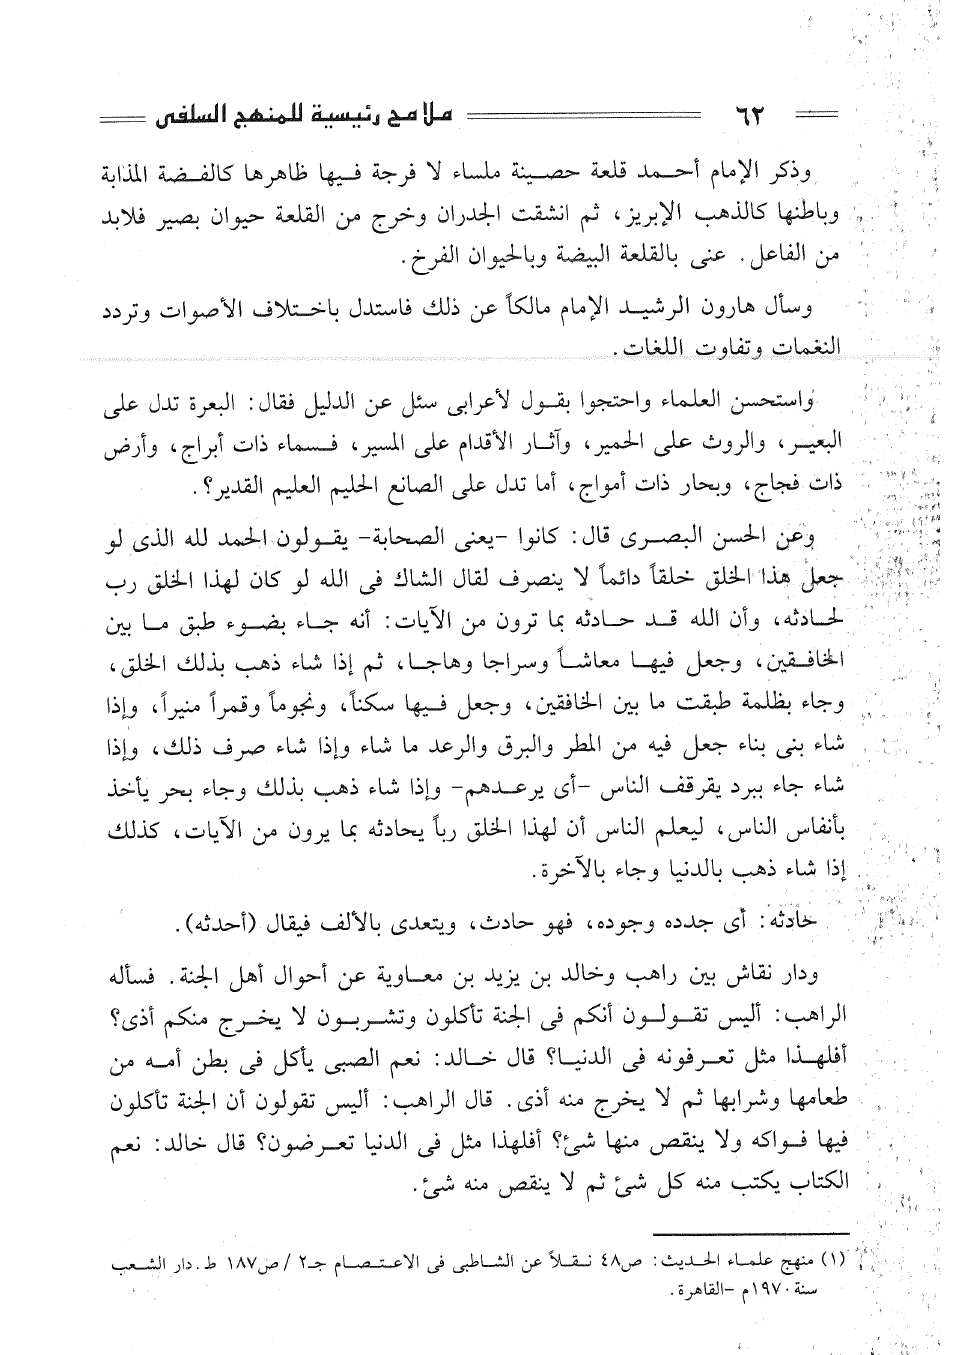 ٦٢ ملامح رئيسية للمنهج السلفى
وذكر الإمام أحمد قلعة حصينة ملساء لا فرجة فيها ظاهرها كالفضة المذابة
وباطنها كالذهب الإبريز، ثم انشقت الجدران وخرج من القلعة حيوان بصير فلابد
من الفاعل. عنى بالقلعة البيضة وبالحيوان الفرخ.
وسأل هارون الرشيد الإمام مالكاً عن ذلك فاستدل باختلاف الأصوات وتردد
النغمات وتفاوت اللغات.
واستحسن العلماء واحتجوا بقول لأعرابى سئل عن الدليل فقال: البعرة تدل على
البعير، والروث على الحمير، وآثار الأقدام على المسير، فسماء ذات أبراج، وأرض
ذات فجاج، وبحار ذات أمواج، أما تدل على الصانع الحليم العليم القدير؟.
وعن الحسن البصرى قال: كانوا -يعنى الصحابة- يقولون الحمد لله الذى لو
جعل هذا الخلق خلقاً دائماً لا ينصرف لقال الشاك فى الله لو كان لهذا الخلق رب
لحادثه، وأن الله قد حادثه بما ترون من الآيات: أنه جاء بضوء طبق ما بين
الخافقين، وجعل فيها معاشاً وسراجا وهاجا، ثم إذا شاء ذهب بذلك الخلق،
وجاء بظلمة طبقت ما بين الخافقين، وجعل فيها سكناً، ونجوماً وقمراً منيراً، وإذا
شاء بنى بناء جعل فيه من المطر والبرق والرعد ما شاء وإذا شاء صرف ذلك، وإذا
شاء جاء ببرد يقرقف الناس -أى يرعدهم- وإذا شاء ذهب بذلك وجاء بحر يأخذ
بأنفاس الناس، ليعلم الناس أن لهذا الخلق رباً يحادثه بما يرون من الآيات، كذلك
إذا شاء ذهب بالدنيا وجاء بالآخرة.
حادثه: أى جدده وجوده، فهو حادث، ويتعدى بالألف فيقال (أحدثه).
ودار نقاش بين راهب وخالد بن يزيد بن معاوية عن أحوال أهل الجنة. فسأله
الراهب: أليس تقولون أنكم فى الجنة تأكلون وتشربون لا يخرج منكم أذى؟
أفلهذا مثل تعرفونه فى الدنيا؟ قال خالد: نعم الصبى يأكل فى بطن أمه من
طعامها وشرابها ثم لا يخرج منه أذى. قال الراهب: أليس تقولون أن الجنة تأكلون
فيها فواكه ولا ينقص منها شئ؟ أفلهذا مثل فى الدنيا تعرضون؟ قال خالد: نعم
الكتاب يكتب منه كل شئ ثم لا ينقص منه شئ.
(١) منهج علماء الحديث: ص٤٨ نقلاً عن الشاطبى فى الاعتصام جـ٢ / ص١٨٧ ط. دار الشعب
سنة ١٩٧٠م -القاهرة.